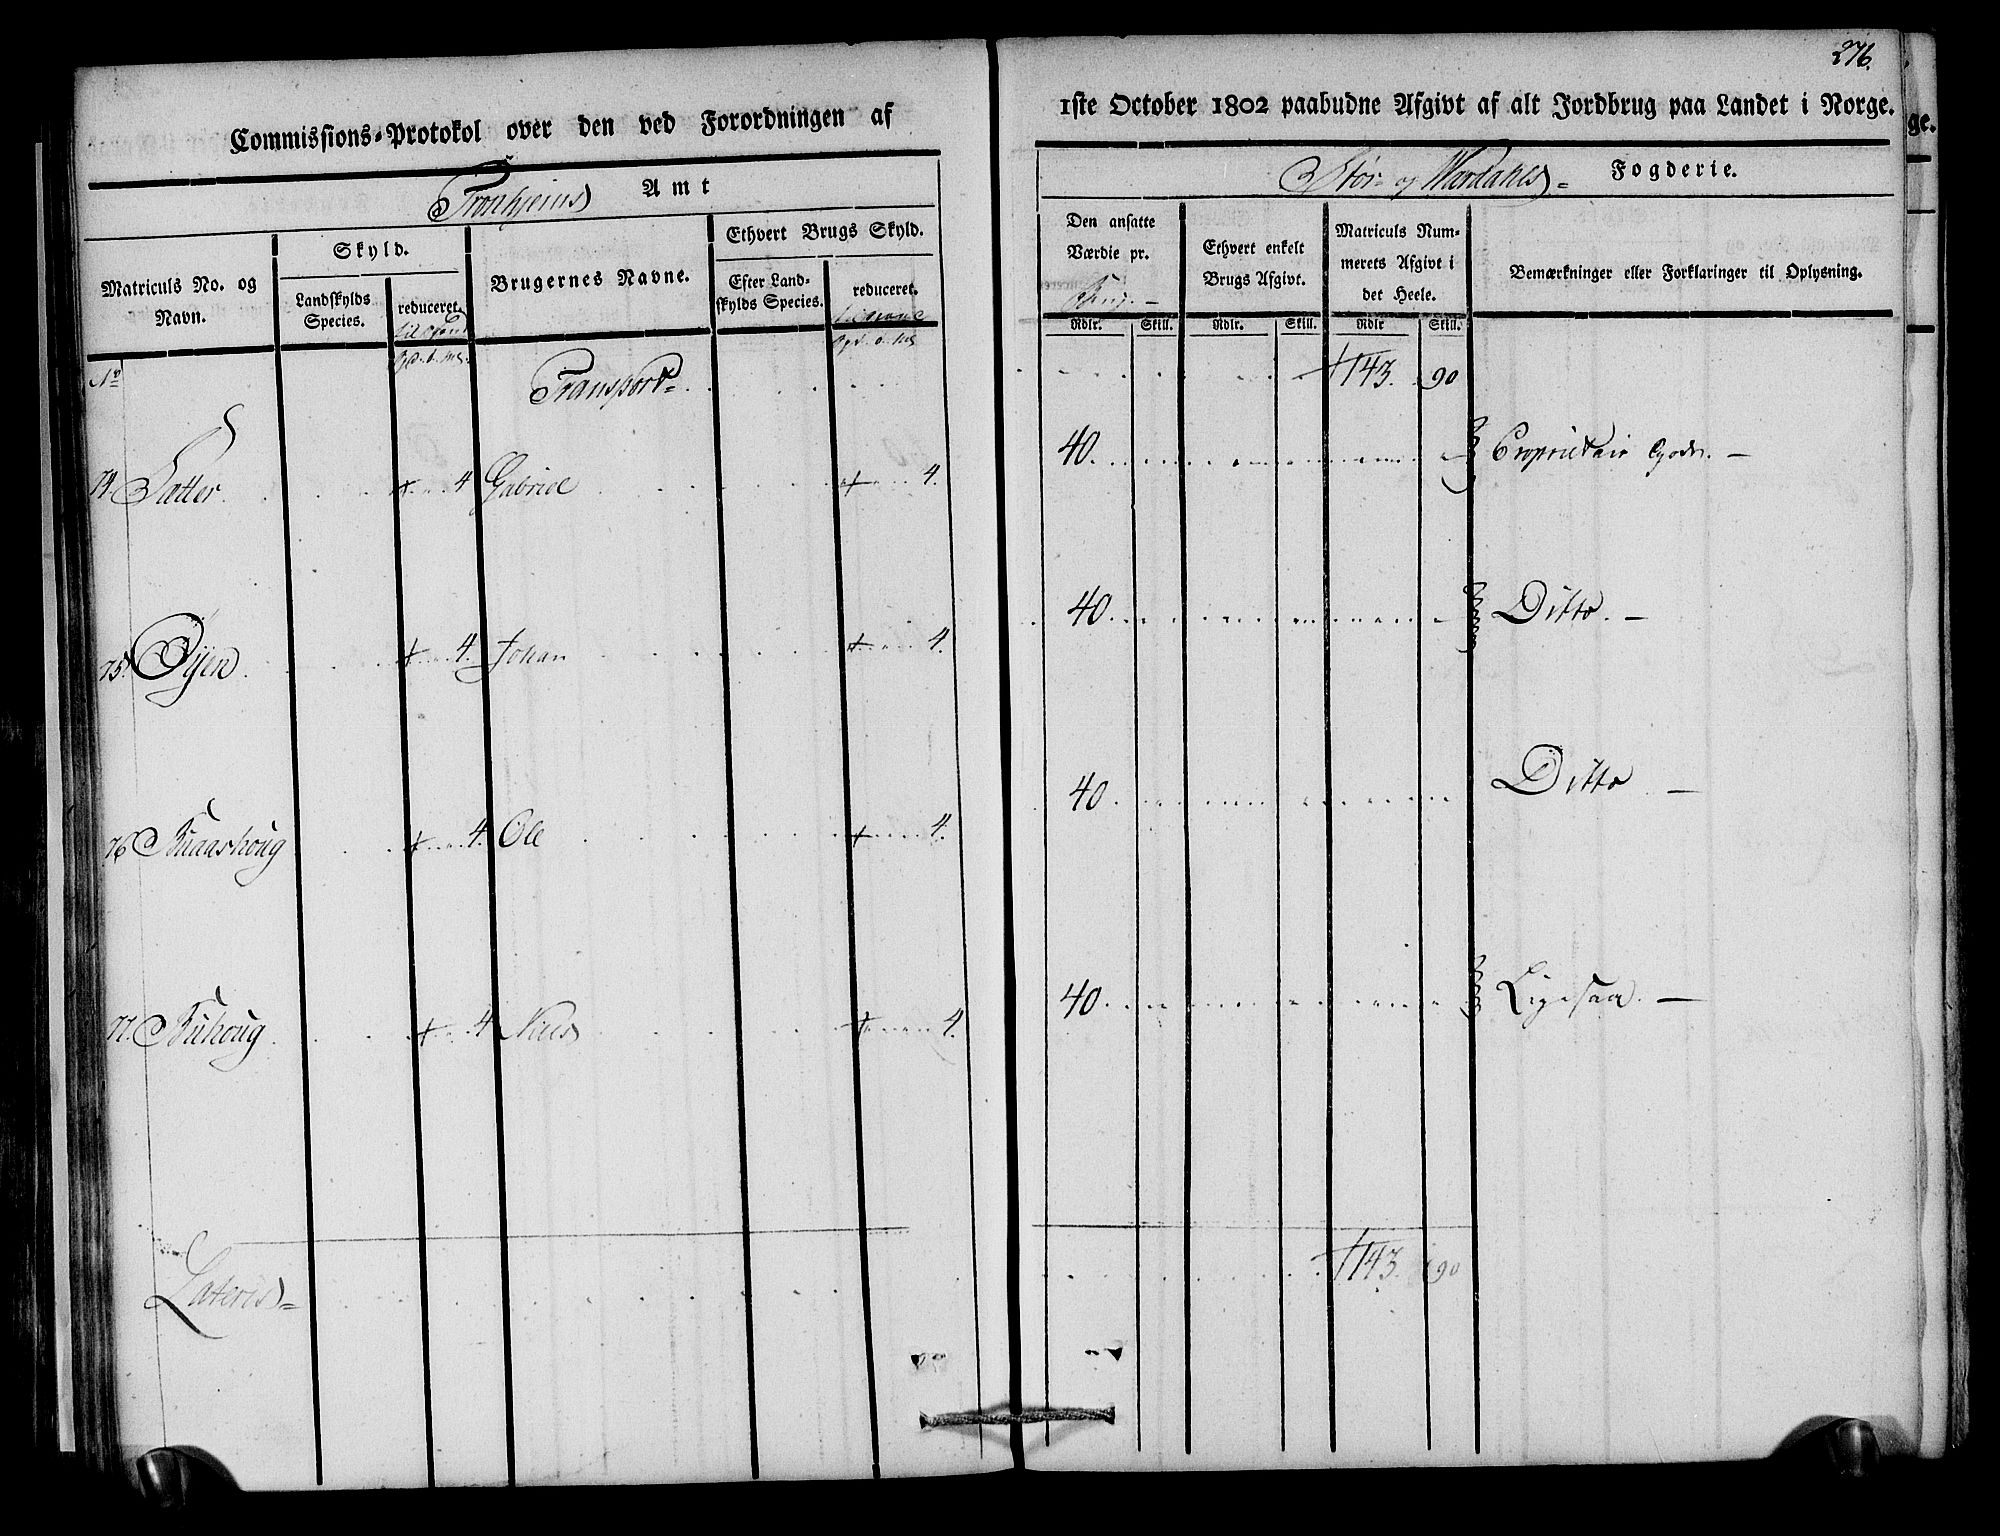 276.
Commissions-Protokol over den ved Forordningen af
1ste October 1802 paabudne Afgivt af alt Jordbrug paa Landet i Norge.
Tronhjems Amt
Stør- og Værdahls Fogderie.
Matriculs No. og Navn.
Skyld.
Landskylds Species.
reduceret.
Brugernes Navne.
Ethvert Brugs Skyld.
Efter Landskylds Species.
reduceret.
Den ansatte Værdie pr.
Ethvert enkelt Brugs Afgivt.
Matriculs Nummerets Afgivt i det Heele.
Bemærkninger eller Forklaringer til Oplysning.
Rdlr. Skill. Rdlr. Skill. Rdlr Skill.
No Transport 143. 90
74. Sætter 4 Gabriel 4. 40 Proprietair Gods.
75. Øÿen 4. Johan 4. 40 Ditto.
76 4. Ole 4. 40 Ditto
77. 4 Niels 4. 40 Ligesaa.
Lateris 143. 90